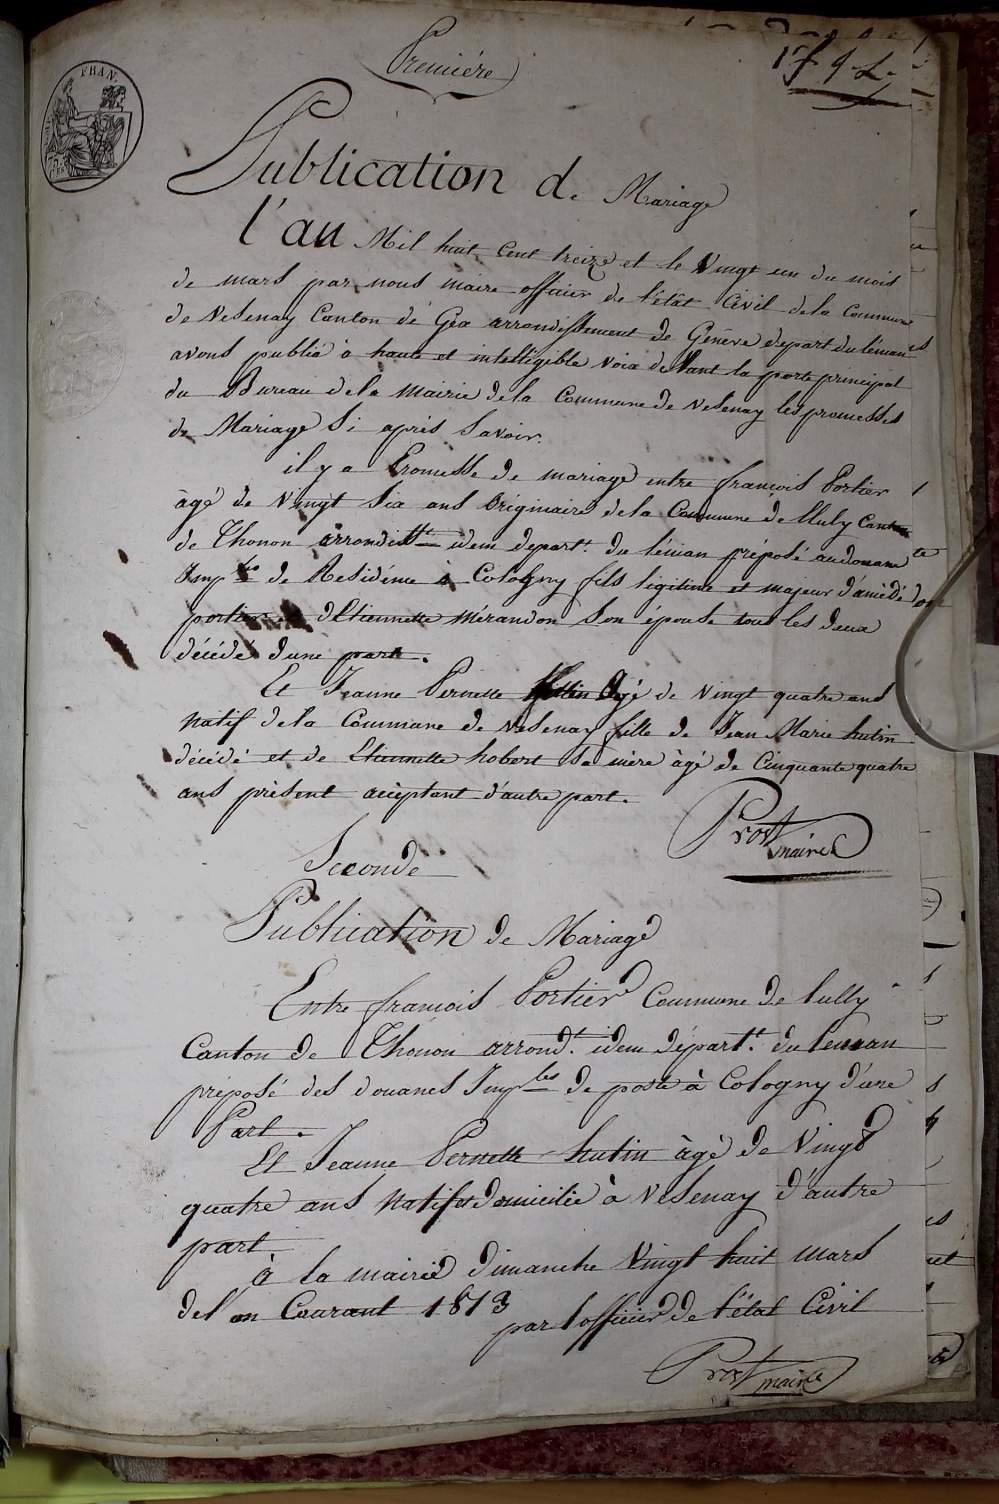 Première
Publication de Mariage
l'an Mil huit Cent treize et le Vingt un du mois
de mars par nous maire officier de l'état Civil de la Commune
de Vesenay Canton de Gex arrondissement de Genève depart du léman
avons publié à haute et intelligible voix devant la porte principal
du Bureau de la Mairie de la Commune de Vesenay les promesses
de Mariage Si après Savoir.
il y a Promesse de mariage entre françois Portier
àgé de Vingt Six ans Originaire de la Commune de Lluly Canton
de Thonon arrondistt idem depart.t du léman préposé au douane
Imples de Residénce à Cologny fils légitime et majeur d'amédé
portier et d'Etiennette Mérandon Son épouse tous les deux
décédé d'une part.
Et Jeanne Pernette hutin Agé de Vingt quatre ans
Natif de la Commune de Vesenay fille de Jean Marie hutin
décédé et de Etiennette hobert Sa mère àgé de Cinquante quatre
ans présent acceptant d'autre part.
Prost
maire
Seconde
Publication de Mariage
Entre françois Portier Commune de lully
Canton de Thonon arrond.t idem départ.t du leman
préposé des douanes Imples de poste à Cologny d'une
Part.
Et Jeanne Pernette hutin àgé de Vingt
quatre ans Natif et domicilié à Vesenay d'autre
part
à la mairie dimanche Vingt huit Mars
de l'an Courant 1813
par l'officier de l'état Civil
Prost
maire